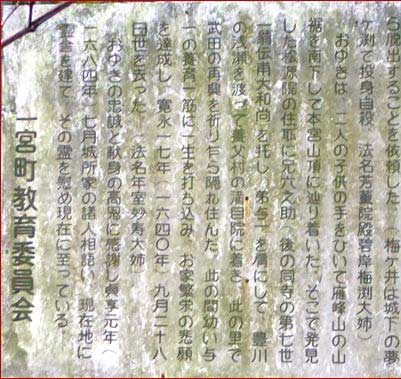 ら脱出することを依頼した。(梅ケ井は城下の夢
ケ渕で投身自殺 法名芳薫院殿碧岸梅渕大姉)
おゆきは、二人の子供の手をひいて雁峰山の山
裾を南下して本宮山頂に辿り着いた。そこで発見
した松源院の住職に兄六之助(後の同寺の第七世
一嶺伝甫大和尚)を托し、弟与一を肩にして、豊川
の浅瀬を渡って養父村の蒲目院に着き、此の里で
武田の再興を祈り乍ら隠れ住んだ。此の間幼い与
一の養育一筋に一生を打ち込み、お家繁栄の悲願
を達成し、寛永一七年(一六四〇年)九月二十八
日世を去った。(法名年室妙寿大姉)
おゆきの忠誠と献身の高恩に感謝し貞享元年(
一六八四年)七月城所家の諸人相語い、現在地に
霊壹を建て、その霊を慰め現在に至っている。
一宮町教育委員会